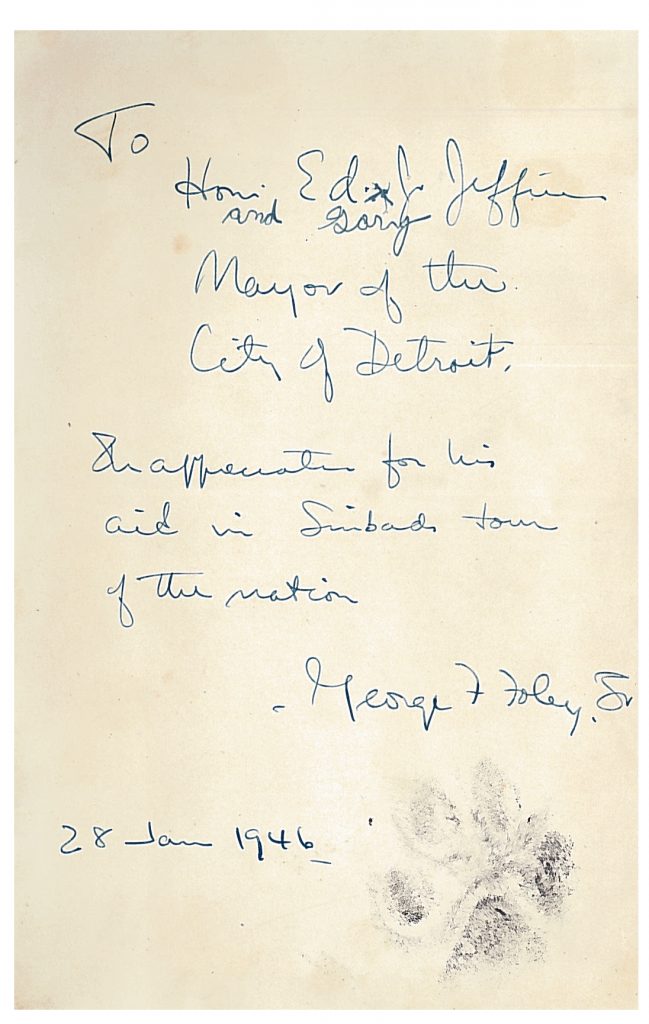 To
Hon. Ed. J. Jeffries
and Gary
Mayor of the
City of Detroit.
In appreciation for his
aid in Sinbads tour
of the nation
- George F Foley, Jr
28 Jan 1946